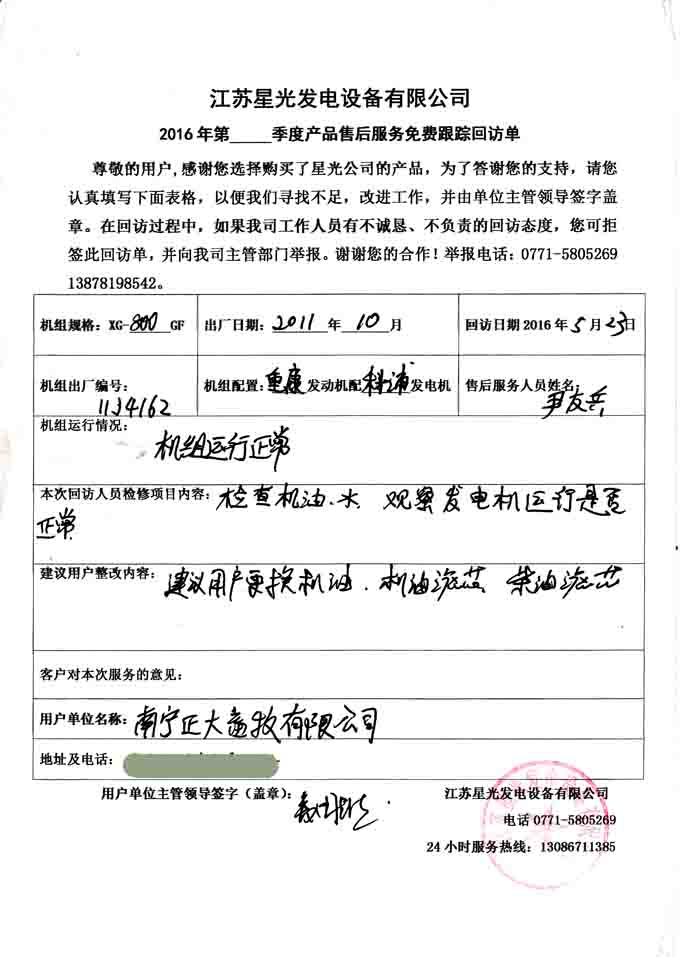 江苏星光发电设备有限公司
2016年第_____季度产品售后服务免费跟踪回访单
尊敬的用户,感谢您选择购买了星光公司的产品，为了答谢您的支持，请您
认真填写下面表格，以便我们寻找不足，改进工作，并由单位主管领导签字盖
章。在回访过程中，如果我司工作人员有不诚恳、不负责的回访态度，您可拒
签此回访单，并向我司主管部门举报。谢谢您的合作！举报电话：0771-5805269
13878198542。
机组规格：XG-800 GF 出厂日期：2011 年 10 月 回访日期2016年5月23日
机组出厂编号：11J4162 机组配置：重康发动机配科浦发电机 售后服务人员姓名：尹友兵
机组运行情况：
机组运行正常
本次回访人员检修项目内容：检查机油、水 观察发电机运行是否
正常
建议用户整改内容：建议用户更换机油、机油滤芯 柴油滤芯
客户对本次服务的意见：
用户单位名称：南宁正大畜牧有限公司
地址及电话：
用户单位主管领导签字（盖章）：
江苏星光发电设备有限公司
电话 0771-5805269
24小时服务热线：13086711385